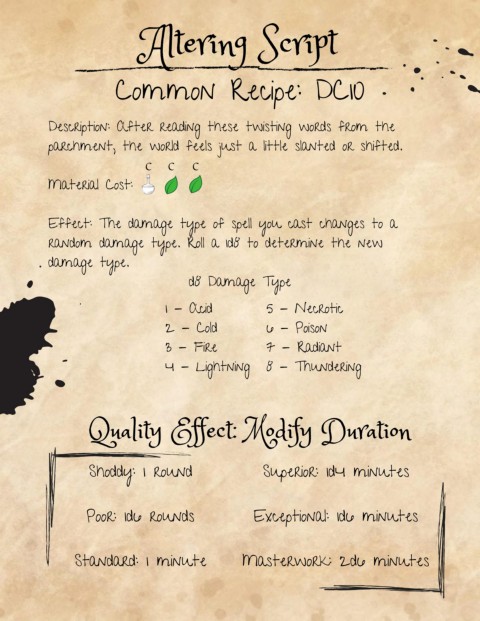 Altering Script
Common Recipe: DC10
Description: After reading these twisting words from the
parchment, the world feels just a little slanted or shifted.
C C C
Material Cost:
Effect: The damage type of spell you cast changes to a
random damage type. Roll a 1d8 to determine the new
damage type.
d8 Damage Type
1 - Acid
2 - Cold
3 - Fire
4 - Lightning
5 - Necrotic
6 - Poison
7 - Radiant
8 - Thundering
Quality Effect: Modify Duration
Shoddy: 1 round
Poor: 1d6 rounds
Standard: 1 minute
Superior: 1d4 minutes
Exceptional: 1d6 minutes
Masterwork: 2d6 minutes